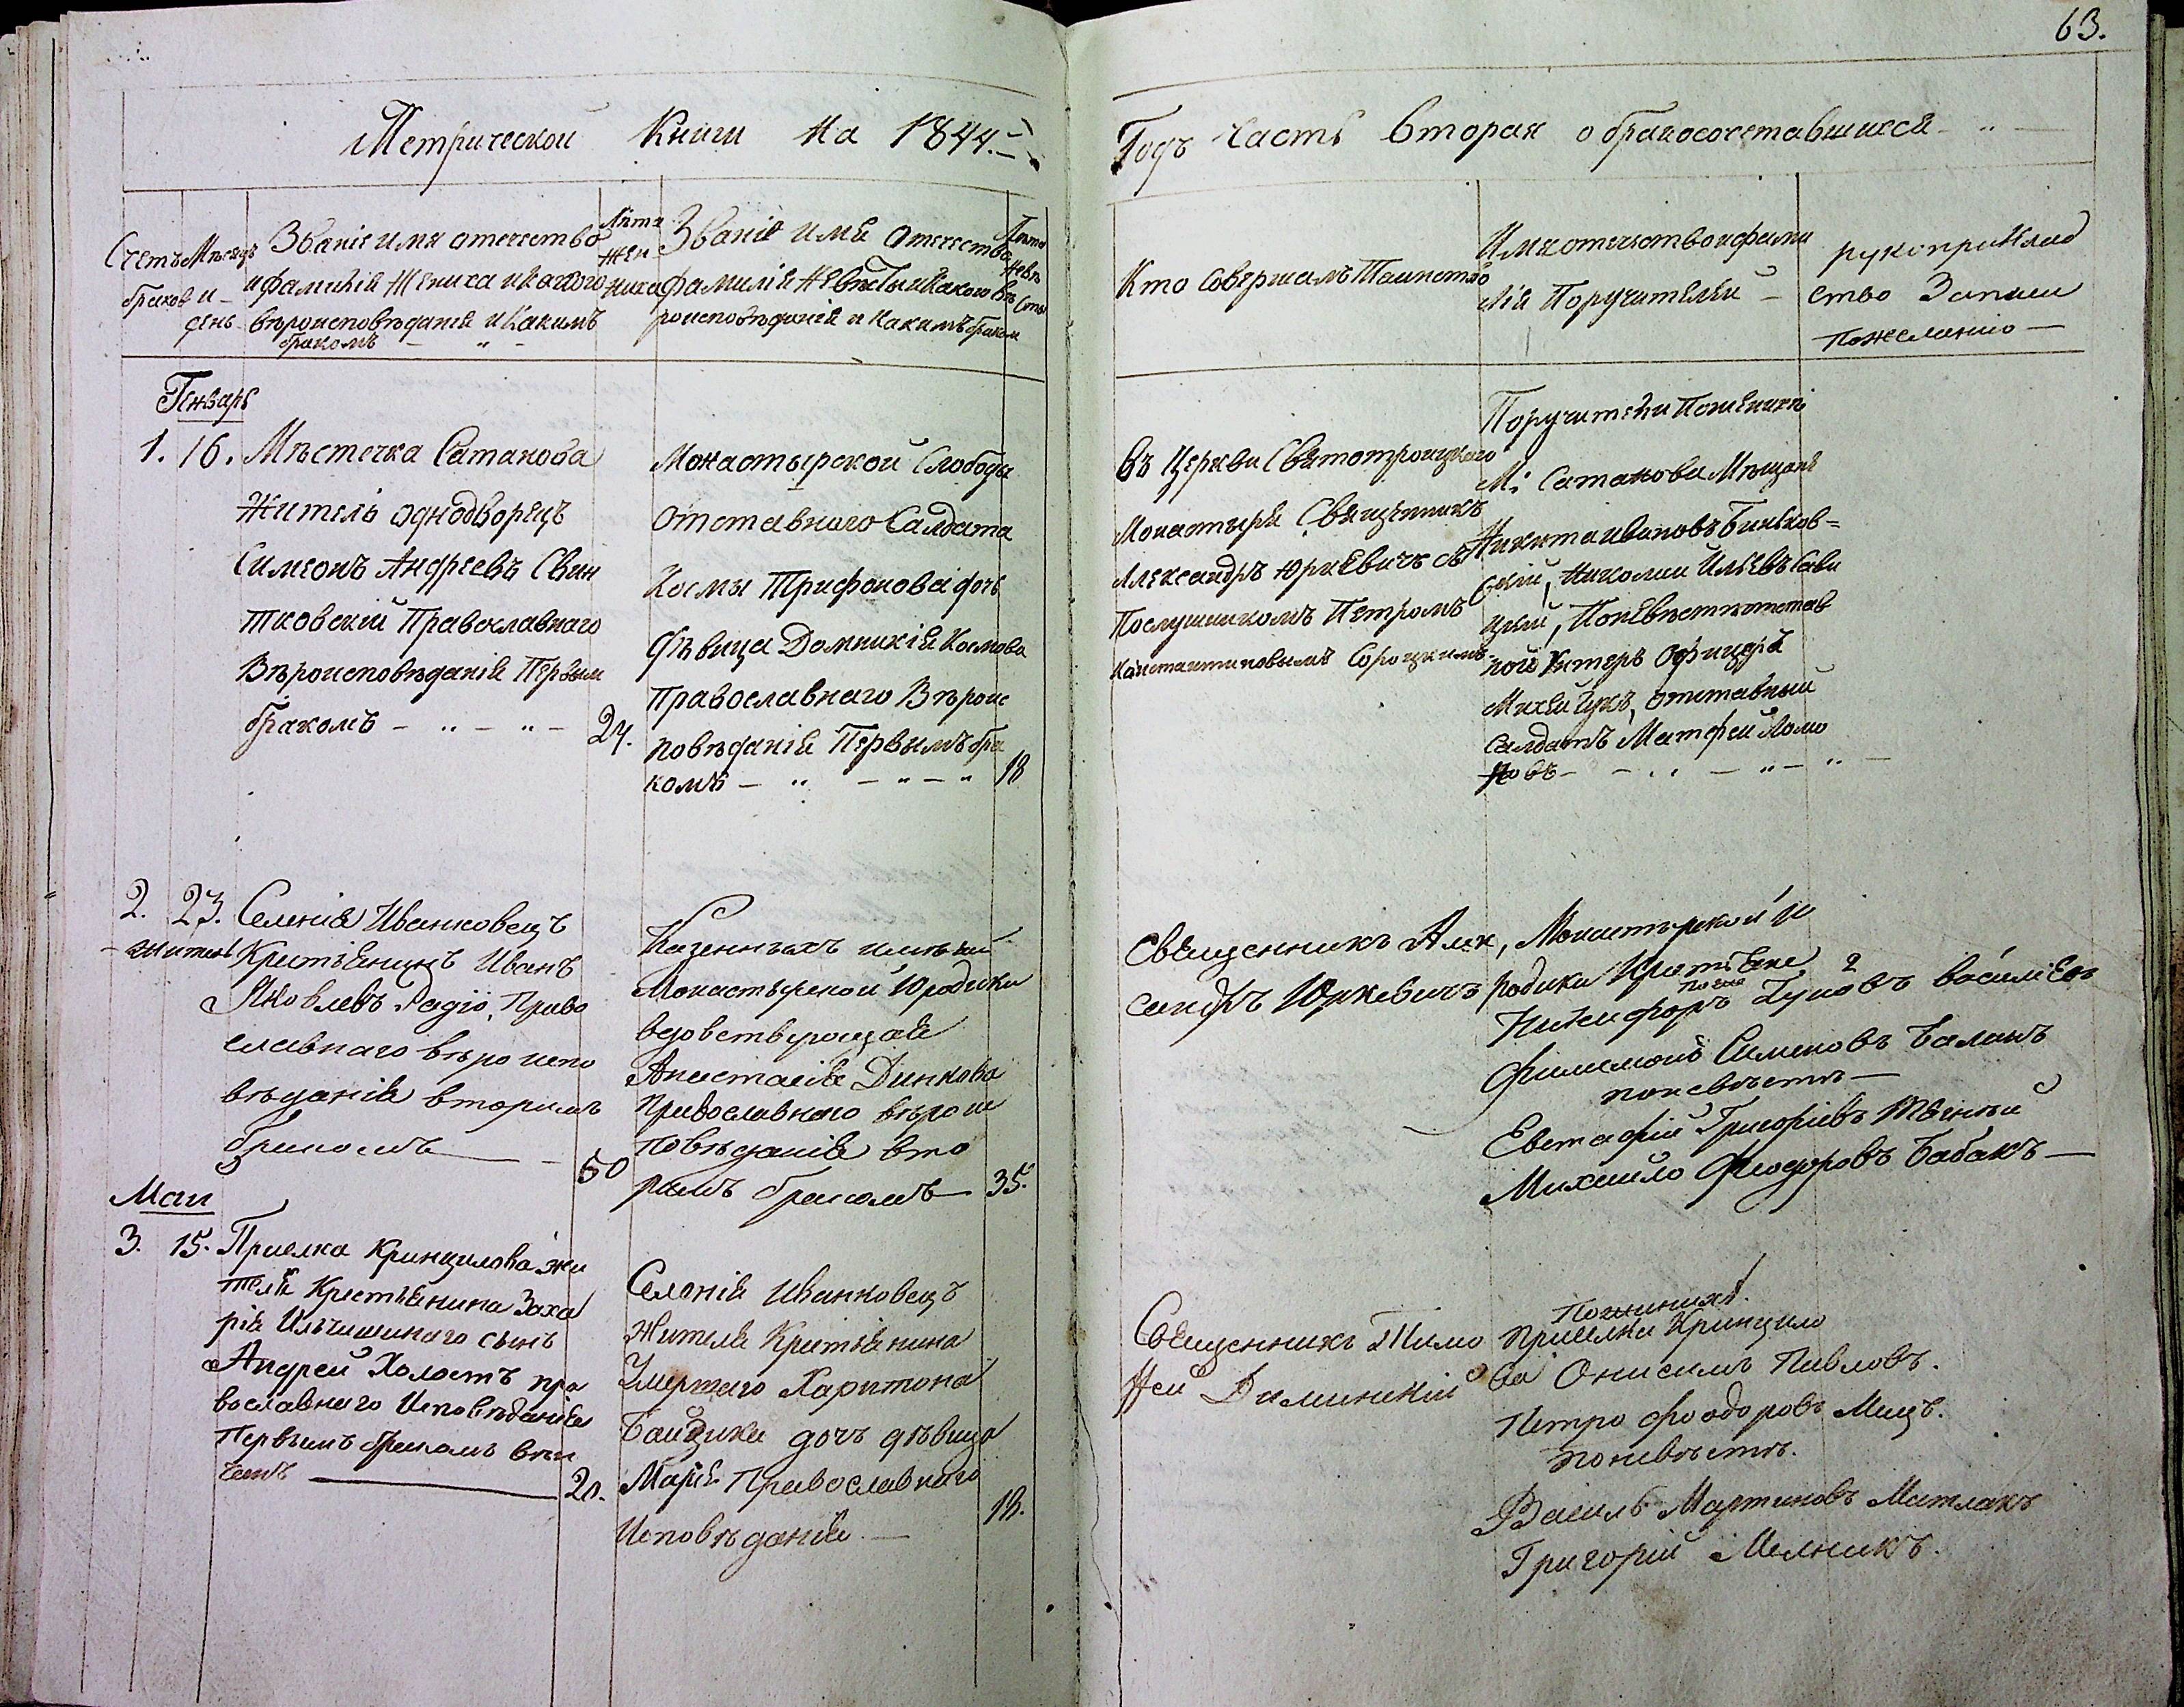 63.
Метрической Книги на 1844.
Годъ Часть Вторая о бракосочетавшихся
Счетъ браков
Мѣсяцъ и день
Званіе имя отечество
и фамилія Жениха и какого
вѣроисповѣданія и Какимъ
бракомъ
Лѣта Жениха
Званіе имя отечество
фамилія Невѣсты и Какого вѣ
роисповѣданія и Какимъ браком
Лѣта невѣсты
Кто Совершалъ Таинство
Имя отечество и фами
лія Поручителей
рукоприклад
ство Записи
по желанію
Январь
1. 16. Мѣстечка Сатанова
Житель однодворецъ
Симеонъ Андреевъ Свен
тковскій Православнаго
Вѣроисповѣданія Первым
бракомъ 24.
Монастырской Слободы
Отставнаго Салдата
Космы Трифонова дочь
дѣвица Домникія Космова
Православнаго Вѣроис
повѣданія Первымъ бра
комъ 18
Въ Церкви Святотроицкаго
Монастыря Священникъ
Александръ Юркевичъ съ
Послушникомъ Петромъ
Константиновымъ Сороцкимъ
Поручители По женихѣ
М. Сатанова Мѣщане
Никита Ивановъ Биньков=
скій, Николай Ильевъ Сави
цкій, По невѣстѣ отстав
ной Унтеръ Офицеръ
Михей Цукъ, отставный
Салдатъ Матфей Ломо
новъ
2. 23. Селенія Иванковецъ
житель Крестьянинъ Иванъ
Яковлевъ Радіо, Право
славнаго вѣроиспо
вѣданія вторымъ
бракомъ 50
Казенныхъ имѣній
Монастырской Юродики
вдовствующая
Анастасія Динкова
Православнаго вѣроис
повѣданія вто
рымъ бракомъ 35.
Священникъ Алек
сандръ Юркевичъ
Монастырской Ю
родики Крестьяне
по жен
Никифоръ Гуковъ Василіевъ
Филимонъ Сименовъ Баланъ
по невѣстѣ
Евстафій Григоріевъ
Михайло Феодоровъ Бабакъ
Маи
3. 15. Присілка Кринцилова жи
теля Крестьянина Заха
рія Ильчишинаго сынъ
Андрей Холостъ пра
вославнаго Исповѣданія
Первымъ бракомъ вѣн
чанъ 20.
Селенія Иванковецъ
Жителя Крестьянина
Умершаго Харитона
Байдика дочь дѣвица
Марія Православнаго
Исповѣданія 18.
Священникъ Тимо
фей Виминскій
По женихѣ
Присілки Кринцило
ва Онисимъ Павловъ.
Петро Феодоровъ Мицъ.
по невѣстѣ.
Василь Мартиновъ Матлакъ
Григорій Мелникъ.